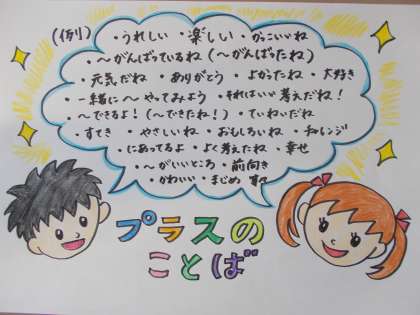 (例) ・うれしい ・楽しい ・かっこいいね
・〜がんばっているね(〜がんばったね)
・元気だね ・ありがとう ・よかったね ・大好き
・一緒に〜やってみよう ・それはいい考えだね！
・〜できるよ！(〜できたね！) ・ていねいだね
・すてき ・やさしいね ・おもしろいね ・チャレンジ
・にあってるよ ・よく考えたね ・幸せ
・〜がいいところ ・前向き
・かわいい ・まじめ
プラスの
ことば